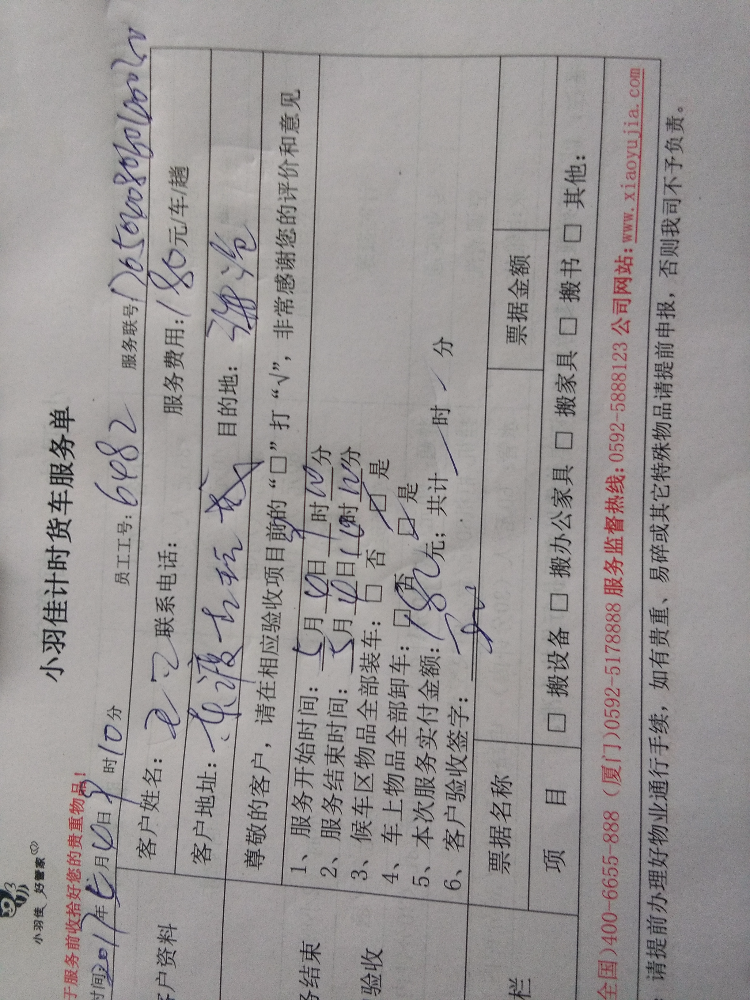 小羽佳 好管家
小羽佳计时货车服务单
于服务前收拾好您的贵重物品！
时间：2017年5月10日9时10分 员工工号：6482 服务联号
客户资料
客户姓名： 联系电话： 服务费用：180元/车/趟
客户地址： 目的地：
尊敬的客户，请在相应验收项目前的“□”打“√”，非常感谢您的评价和意见
务结束
验收
1、服务开始时间：5月10日9时10分
2、服务结束时间：5月10日10时10分
3、候车区物品全部装车：□ 否 □ 是
4、车上物品全部卸车：□ 否 □ 是
5、本次服务实付金额：180元；共计 时 分
6、客户验收签字：
栏
票据名称 票据金额
项目 □ 搬设备 □ 搬办公家具 □ 搬家具 □ 搬书 □ 其他：
全国)400-6655-888 (厦门)0592-5178888 服务监督热线:0592-5888123 公司网站:www.xiaoyujia.com
请提前办理好物业通行手续，如有贵重、易碎或其它特殊物品请提前申报，否则我司不予负责。